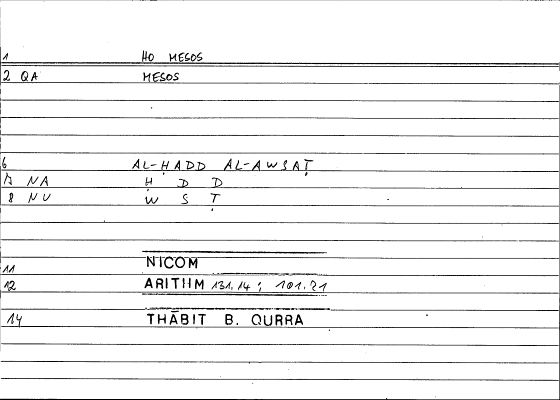 1 HO MESOS
2 QA MESOS
6 AL-ḤADD AL-AWSAṬ
7 NA Ḥ D D
8 NU W S Ṭ
11 NICOM
12 ARITHM 131.14 ; 101.21
14 THĀBIT B. QURRA